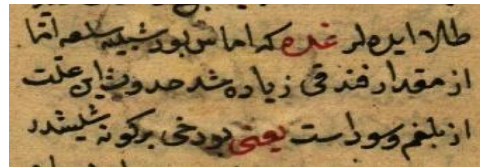 طلا ایده لر غده که اماس بود شبیه سلعه امّا
از مقدار فندقی زیاده شد حدوث این علّت
از بلغم و سوداست یعنی بودخی برکونه شیشدر